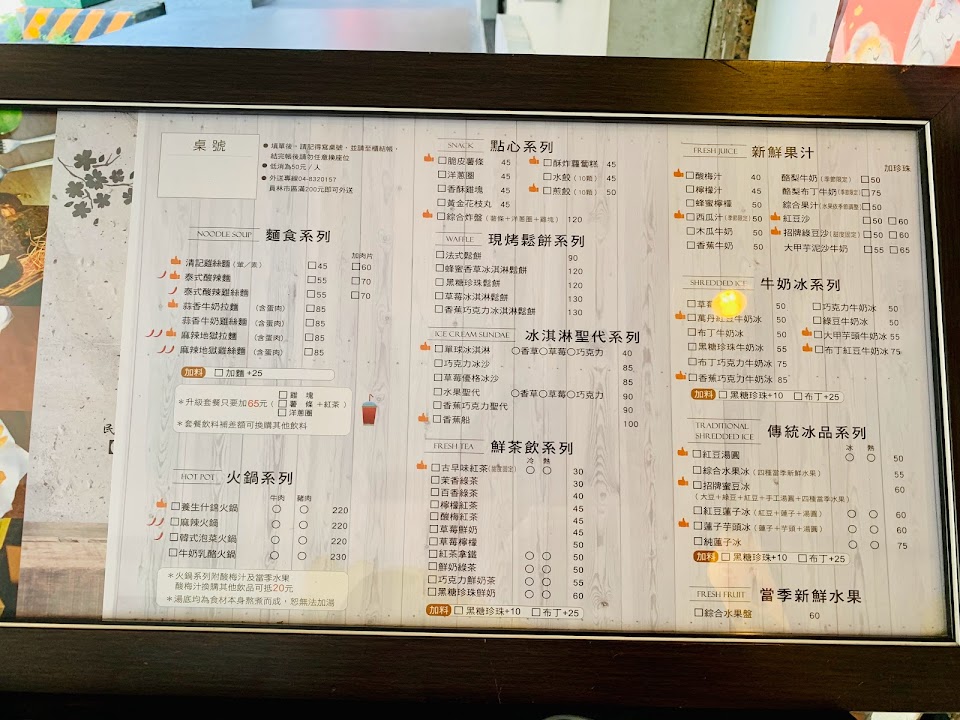 桌號
● 填單後，請記得寫桌號，並請至櫃結帳，
結完帳後請勿任意換座位
● 低消為50元／人
● 外送專線04-8320157
員林市區滿200元即可外送
NOODLE SOUP 麵食系列
加肉片
清記雞絲麵（葷／素） □45 □60
泰式酸辣麵 □55 □70
泰式酸辣雞絲麵 □55 □70
蒜香牛奶拉麵 （含蛋肉） □85
蒜香牛奶雞絲麵 （含蛋肉） □85
麻辣地獄拉麵 （含蛋肉） □85
麻辣地獄雞絲麵 （含蛋肉） □85
加料 □加麵+25
＊升級套餐只要加65元（ □雞 塊 □薯 條 □洋蔥圈 ＋紅茶 ）
＊套餐飲料補差額可換購其他飲料
HOT POT 火鍋系列
牛肉 豬肉
□養生什錦火鍋 ○ ○ 220
□麻辣火鍋 ○ ○ 220
□韓式泡菜火鍋 ○ ○ 220
□牛奶乳酪火鍋 ○ ○ 230
＊火鍋系列附酸梅汁及當季水果
酸梅汁換購其他飲品可抵20元
＊湯底均為食材本身熬煮而成，恕無法加湯
民
SNACK 點心系列
□脆皮薯條 45 □酥炸蘿蔔糕 45
□洋蔥圈 45 □水餃（10顆） 45
□香酥雞塊 45 □煎餃（10顆） 50
□黃金花枝丸 45
□綜合炸盤（薯條＋洋蔥圈＋雞塊） 120
WAFFLE 現烤鬆餅系列
□法式鬆餅 90
□蜂蜜香草冰淇淋鬆餅 120
□黑糖珍珠鬆餅 120
□草莓冰淇淋鬆餅 130
□香蕉巧克力冰淇淋鬆餅 130
ICE CREAM SUNDAE 冰淇淋聖代系列
□單球冰淇淋 ○香草○草莓○巧克力 40
□巧克力冰沙 85
□草莓優格冰沙 85
□水果聖代 ○香草○草莓○巧克力 90
□香蕉巧克力聖代 90
□香蕉船 100
FRESH TEA 鮮茶飲系列
冷 熱
□古早味紅茶（甜度固定） ○ ○ 30
□茉香綠茶 30
□百香綠茶 40
□檸檬紅茶 45
□酸梅紅茶 45
□草莓鮮奶 45
□草莓檸檬 50
□紅茶拿鐵 ○ ○ 50
□鮮奶綠茶 ○ ○ 50
□巧克力鮮奶茶 ○ ○ 55
□黑糖珍珠鮮奶 ○ ○ 60
加料 □黑糖珍珠+10 □布丁+25
FRESH JUICE 新鮮果汁
加珍珠
□酸梅汁 40 酪梨牛奶（季節限定） □50
□檸檬汁 45 酪梨布丁牛奶（季節限定） □75
□蜂蜜檸檬 50 綜合果汁（水果依季節調整） □50
□西瓜汁（季節限定） 50 紅豆沙 □50 □60
□木瓜牛奶 50 招牌綠豆沙（甜度固定） □50 □60
□香蕉牛奶 50 大甲芋泥沙牛奶 □55 □65
SHREDDED ICE 牛奶冰系列
□草莓 50 □巧克力牛奶冰 50
□萬丹紅豆牛奶冰 50 □綠豆牛奶冰 50
□布丁牛奶冰 50 □大甲芋頭牛奶冰 55
□黑糖珍珠牛奶冰 55 □布丁紅豆牛奶冰 75
□布丁巧克力牛奶冰 75
□香蕉巧克力牛奶冰 85
加料 □黑糖珍珠+10 □布丁+25
TRADITIONAL SHREDDED ICE 傳統冰品系列
冰 熱
□紅豆湯圓 ○ ○ 50
□綜合水果冰（四種當季新鮮水果） 55
□招牌蜜豆冰 60
（大豆＋綠豆＋紅豆＋手工湯圓＋四種當季水果）
□紅豆蓮子冰（紅豆＋蓮子＋湯圓） ○ ○ 60
□蓮子芋頭冰（蓮子＋芋頭＋湯圓） ○ ○ 60
□純蓮子冰 ○ ○ 75
加料 □黑糖珍珠+10 □布丁+25
FRESH FRUIT 當季新鮮水果
□綜合水果盤 60